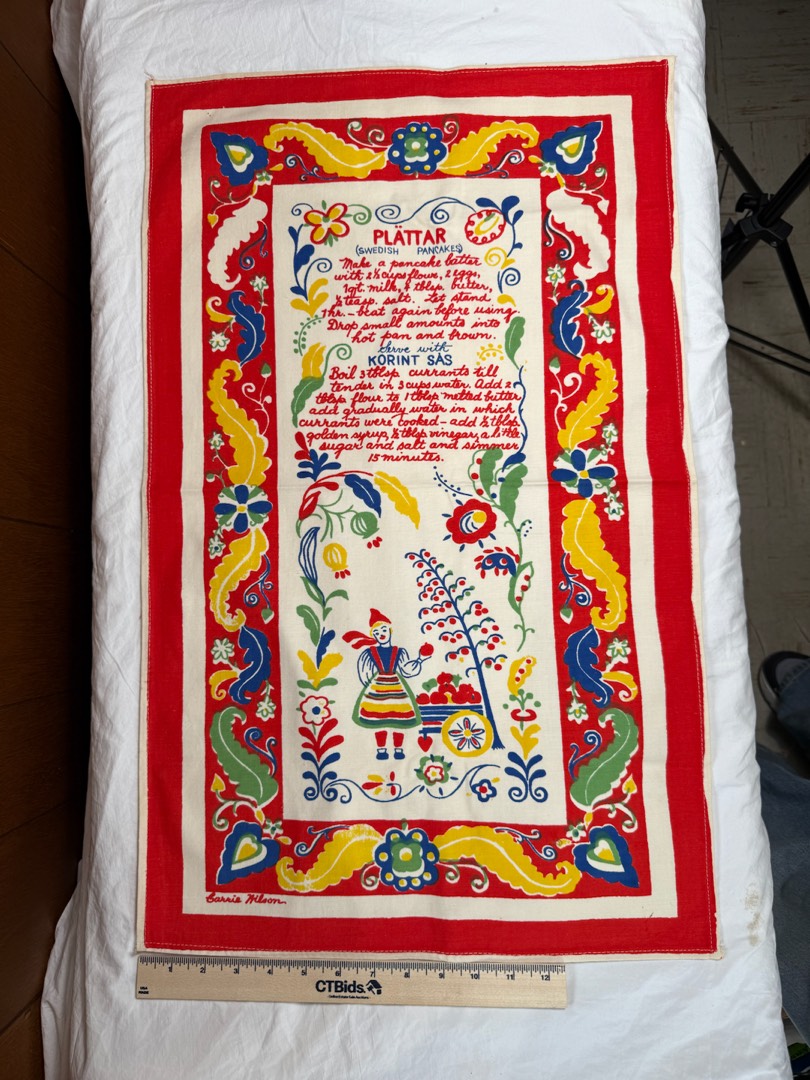 PLÄTTAR
(SWEDISH PANCAKES)
Make a pancake batter
with 2½ cups flour, 2 eggs,
1 qt. milk, 4 tblsp. butter,
½ teasp. salt. Let stand
1 hr. – beat again before using.
Drop small amounts into
hot pan and brown.
Serve with
KORINT SÅS
Boil 3 tblsp. currants till
tender in 3 cups water. Add 2
tblsp flour to 1 tblsp melted butter
add gradually water in which
currants were cooked – add ½ tblsp.
golden syrup, ½ tblsp vinegar, a little
sugar and salt and simmer
15 minutes.
Carrie Wilson
1 2 3 4 5 6 7 8 9 10 11 12
CTBids.